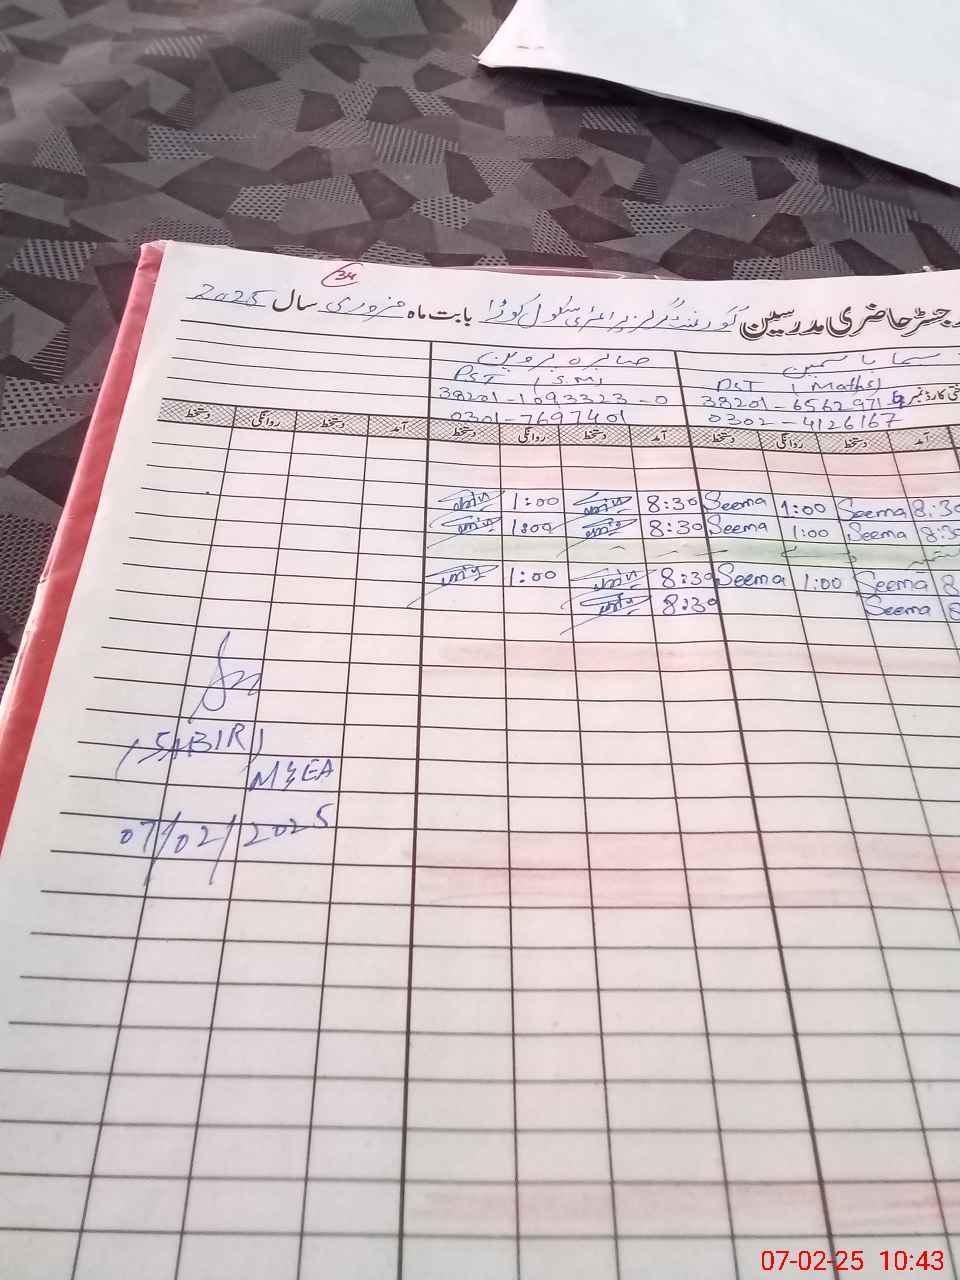 34
جسٹر حاضری مدرسین گورنمنٹ گرلز پرائمری سکول کوڑا بابت ماہ فروری سال 2025
سیما یاسمین صابرہ پروین
PST (Maths) PST (S.M)
38201-6562971- 38201-1093323-0
0302-4126167 0301-7697401
آمد دستخط روانگی دستخط آمد دستخط روانگی دستخط آمد دستخط روانگی دستخط
1:00 8:30 Seema 1:00 Seema 8:30
1:00 8:30 Seema 1:00 Seema 8:30
1:00 8:30 Seema 1:00 Seema 8
8:30 Seema 8
(SABIR)
M&EA
07/02/2025
07-02-25 10:43